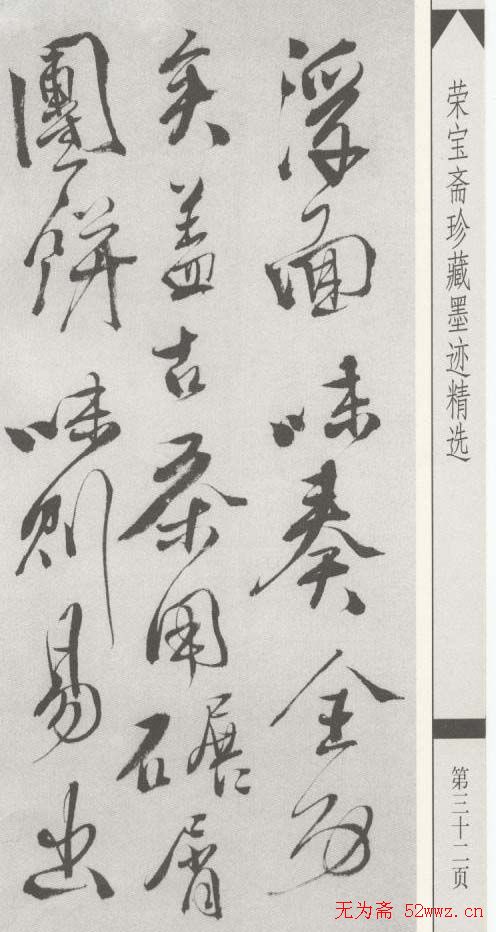 荣宝斋珍藏墨迹精选
浮面味奏全功
矣盖古茶用碾屑
團餅味則易出
第三十二页
无为斋 52wwz.cn